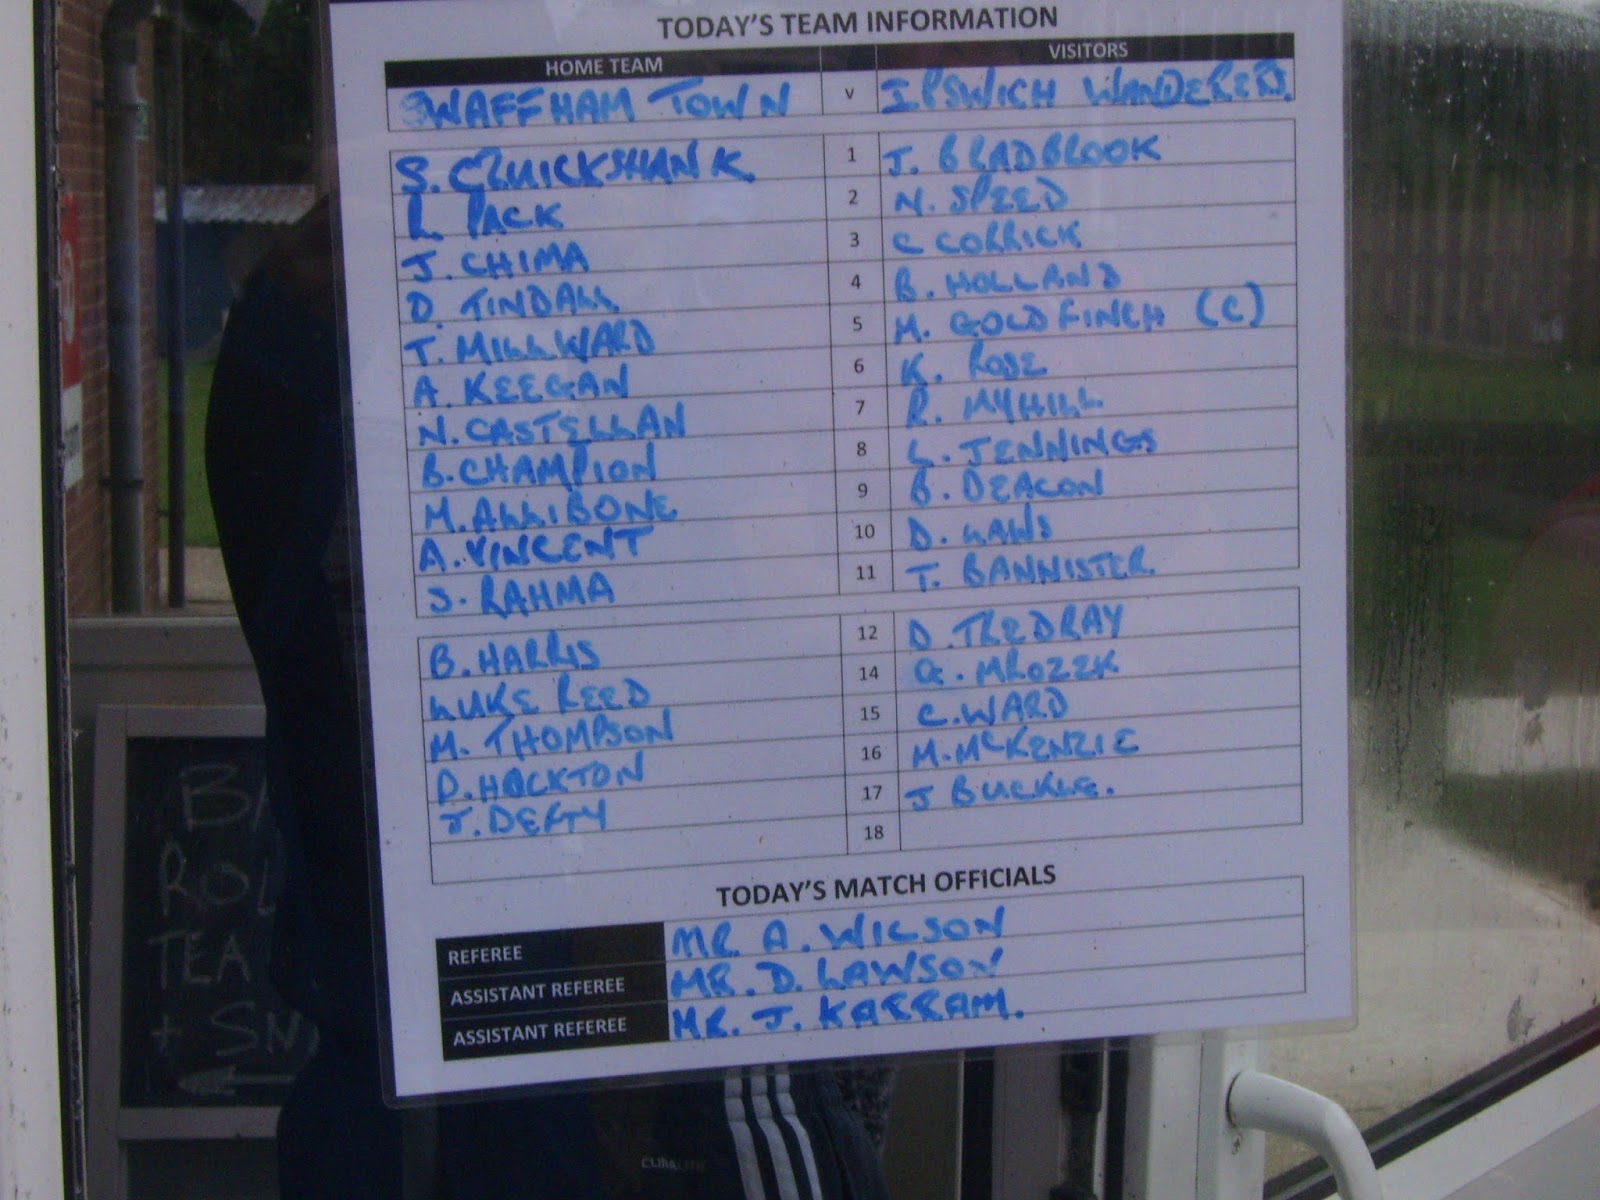 TODAY'S TEAM INFORMATION
HOME TEAM VISITORS
SWAFFHAM TOWN v IPSWICH WANDERERS.
S. CRUICKSHANK 1 J. BRADBROOK
R PACK 2 N. SPEED
J. CHIMA 3 C CORRICK
D TINDALL 4 B. HOLLAND
T. MILLWARD 5 M. GOLDFINCH (C)
A. KEEGAN 6 K. ROSE
N. CASTELLAN 7 R. MYHILL
B. CHAMPION 8 L. JENNINGS
M. ALLIBONE 9 B. DEACON
A. VINCENT 10 D. LAWS
S. RAHMA 11 T. BANNISTER.
B. HARRIS 12 D. TREDRAY
LUKE REED 14 G. MROZEK
M. THOMPSON 15 C. WARD
D. HOCKTON 16 M. MCKENZIE
J. DEFTY 17 J BUCKLE.
18
TODAY'S MATCH OFFICIALS
REFEREE MR. A. WILSON
ASSISTANT REFEREE MR. D. LAWSON
ASSISTANT REFEREE MR. J. KARRAM.
BA
ROL
TEA
+ SN